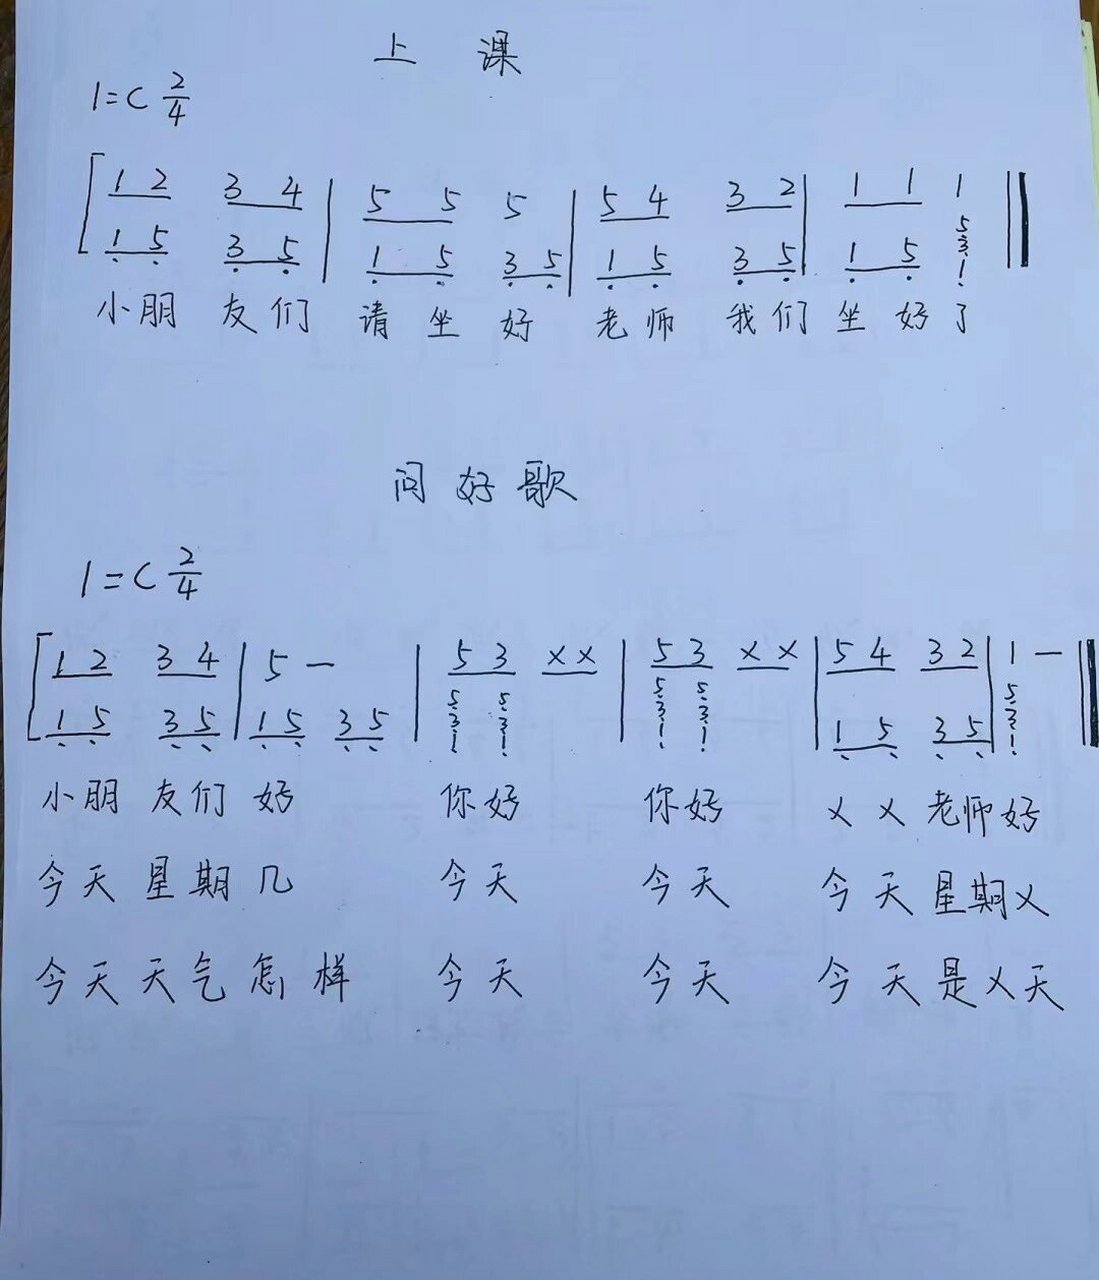 上 课
1=C 2/4
1 2 3 4 | 5 5 5 | 5 4 3 2 | 1 1 1 ‖
1 5 3 5 | 1 5 3 5 | 1 5 3 5 | 1 5 5 3 1
小朋 友们 请 坐 好 老师 我们 坐 好 了
问 好 歌
1=C 2/4
1 2 3 4 | 5 – | 5 3 X X | 5 3 X X | 5 4 3 2 | 1 – ‖
1 5 3 5 | 1 5 3 5 | 5 3 1 5 3 1 | 5 3 1 5 3 1 | 1 5 3 5 | 5 3 1
小朋 友们 好 你好 你好 X X 老师好
今天 星期 几 今天 今天 今天 星期X
今天 天气 怎样 今天 今天 今天是X天